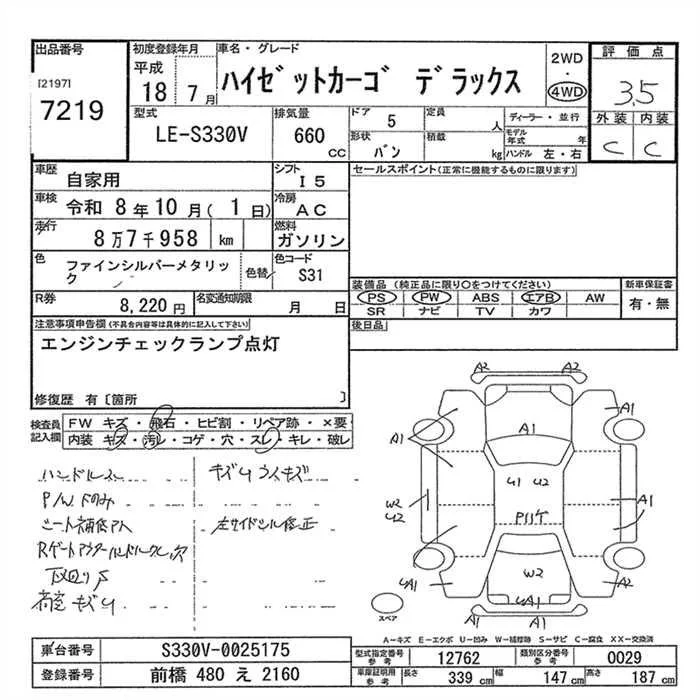 出品番号
[2197]
7219
初度登録年月
平成
18 年 7 月
車名・グレード
ハイゼットカーゴ デラックス
2WD
・
4WD
評価点
3.5
外装 内装
C C
型式
LE-S330V
排気量
660
CC
ドア 5
定員 人
形状 バン
積載 kg
ディーラー・並行
モデル年式 年
ハンドル 左・右
車歴 自家用
シフト I5
車検 令和 8年10月(1日)
冷房 AC
走行 8万7千958 km
燃料 ガソリン
色 ファインシルバーメタリック
色替
色コード S31
R券 8,220 円
名変通知期限 月 日
セールスポイント(正常に機能するものに限ります)
装備品(純正品に限り○をつけてください)
PS PW ABS エアB AW
SR ナビ TV カワ
新車保証書
有・無
後日品
注意事項申告欄(不具合内容等は具体的に記入して下さい)
エンジンチェックランプ点灯
修復歴 有〔箇所 〕
検査員記入欄
FW キズ・飛石・ヒビ割・リペア跡・×要
内装 キズ・汚レ・コゲ・穴・スレ・キレ・破レ
ハンドルスレ
キズU うスキズ
P/W下のみ
シート補修アト
左サイドシル修正
Rゲートアウターハンドルクレ、欠
下廻りS
荷室キズU
A2 A2
A1 A1
A1
U1 U2
W2
U2
A1
Pハゲ
W2
UA1 A2
A1 A1
スペア
A-キズ E-エクボ U-凹み W-補修跡 S-サビ C-腐食 XX-交換済
車台番号 S330V-0025175
登録番号 前橋 480 え 2160
型式指定番号 参考 12762
類別区分番号 参考 0029
車庫証明用 参考 長さ 339 cm 幅 147 cm 高さ 187 cm